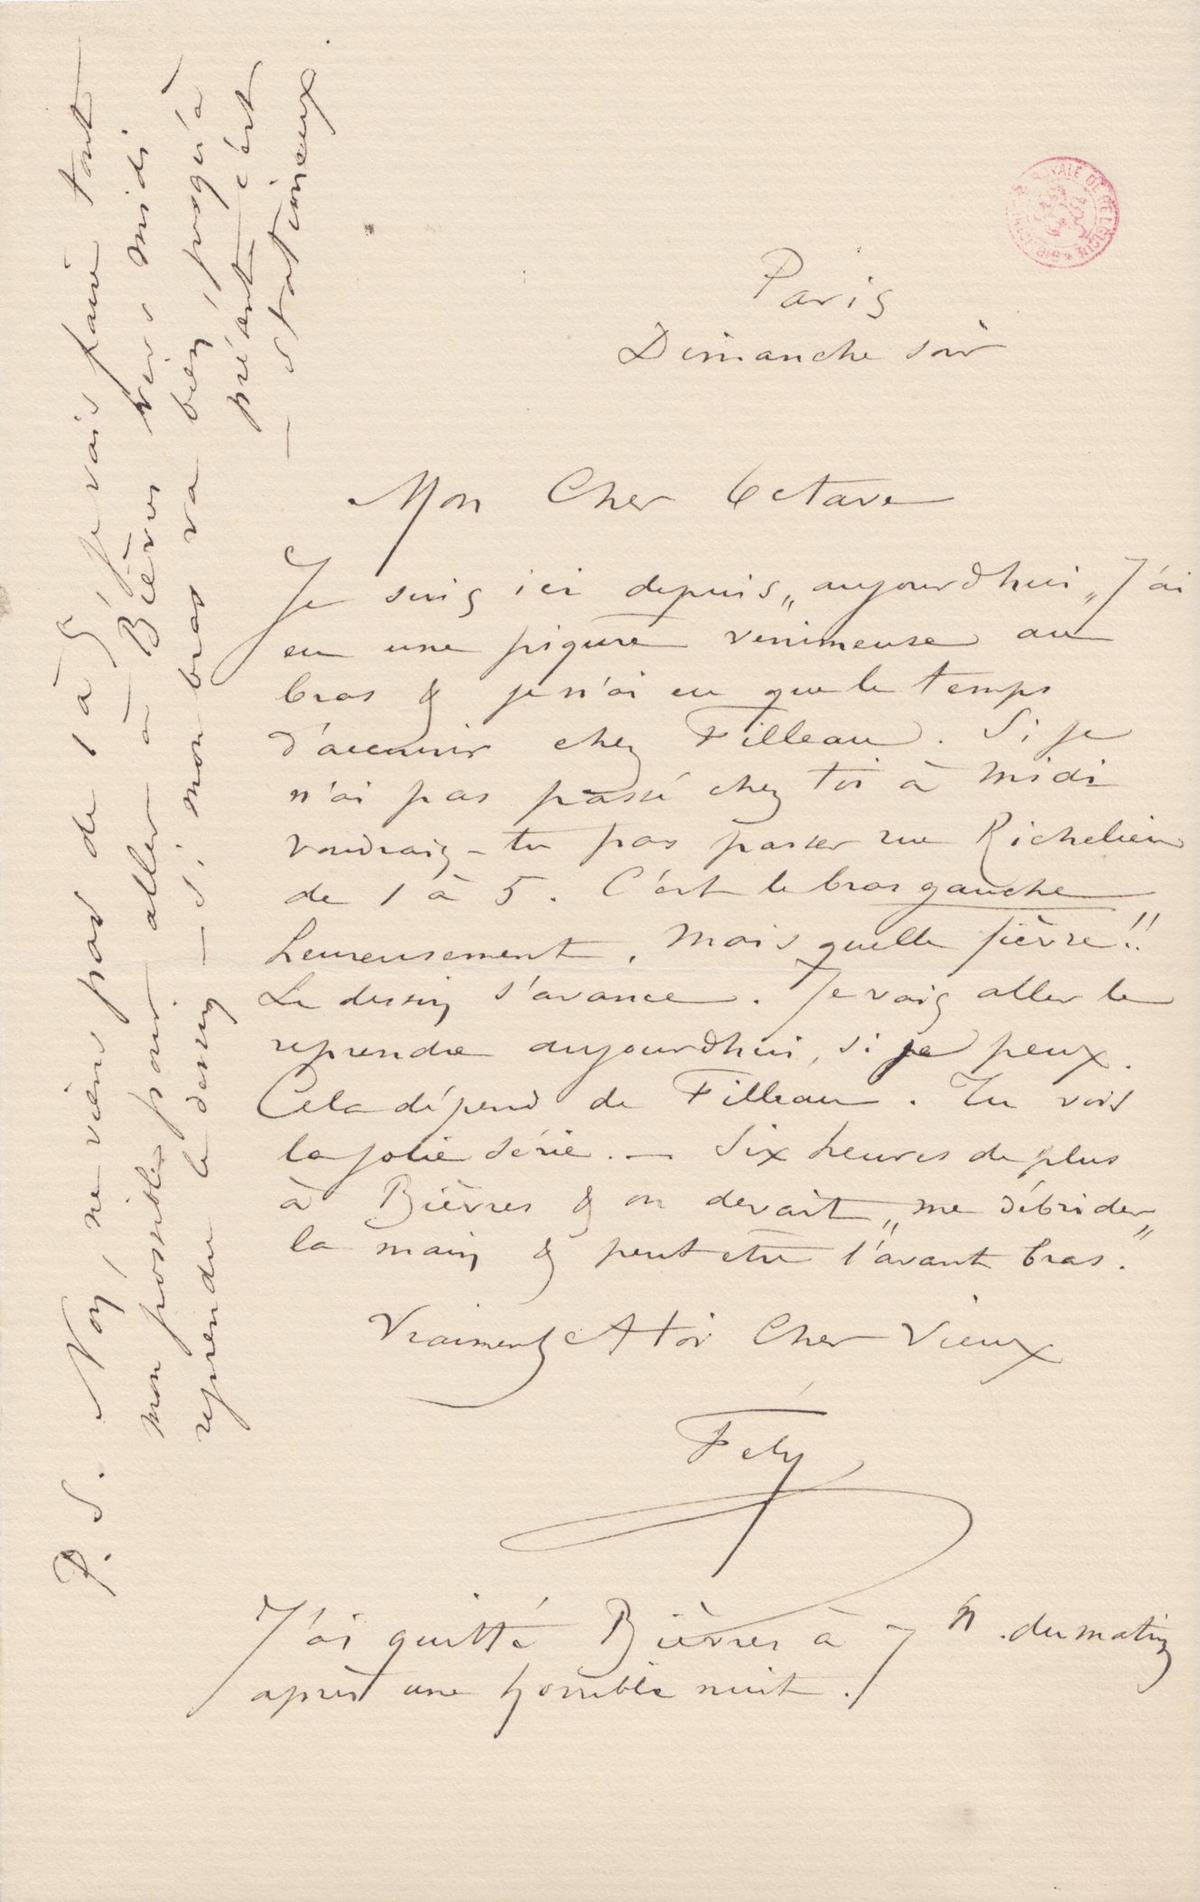 Paris
Dimanche soir
Mon Cher Octave
Je suis ici depuis „aujourdhui„ J'ai
eu une piqure venimeuse au
bras & je n'ai eu que le temps
d'accourir chez Filleau. Si je
n'ai pas passé chez toi à midi
voudrais-tu pas passer rue Richelieu
de 1 à 5. C'est le bras gauche
heureusement, mais quelle fièvre!!
Le dessin s'avance. Je vais aller le
reprendre aujourdhui, si je peux.
Cela dépend de Filleau. Tu vois
la jolie série. — Six heures de plus
à Bièvres & on devait „me débrider„
la main & peut etre l'avant bras.
Vraiment A toi Cher Vieux
Fély
J'ai quitté Bièvres à 7 h. du matin
après une horrible nuit.
P.S. Non, ne viens pas de 1 à 5, je vais faire tout
mon possible pour aller à Bièvres vers midi
reprendre le dessin — si mon bras va bien, jusqu'à
présent c'est
— stationnaire.
BIBLIOTH. ROYALE DE BELGIQUE